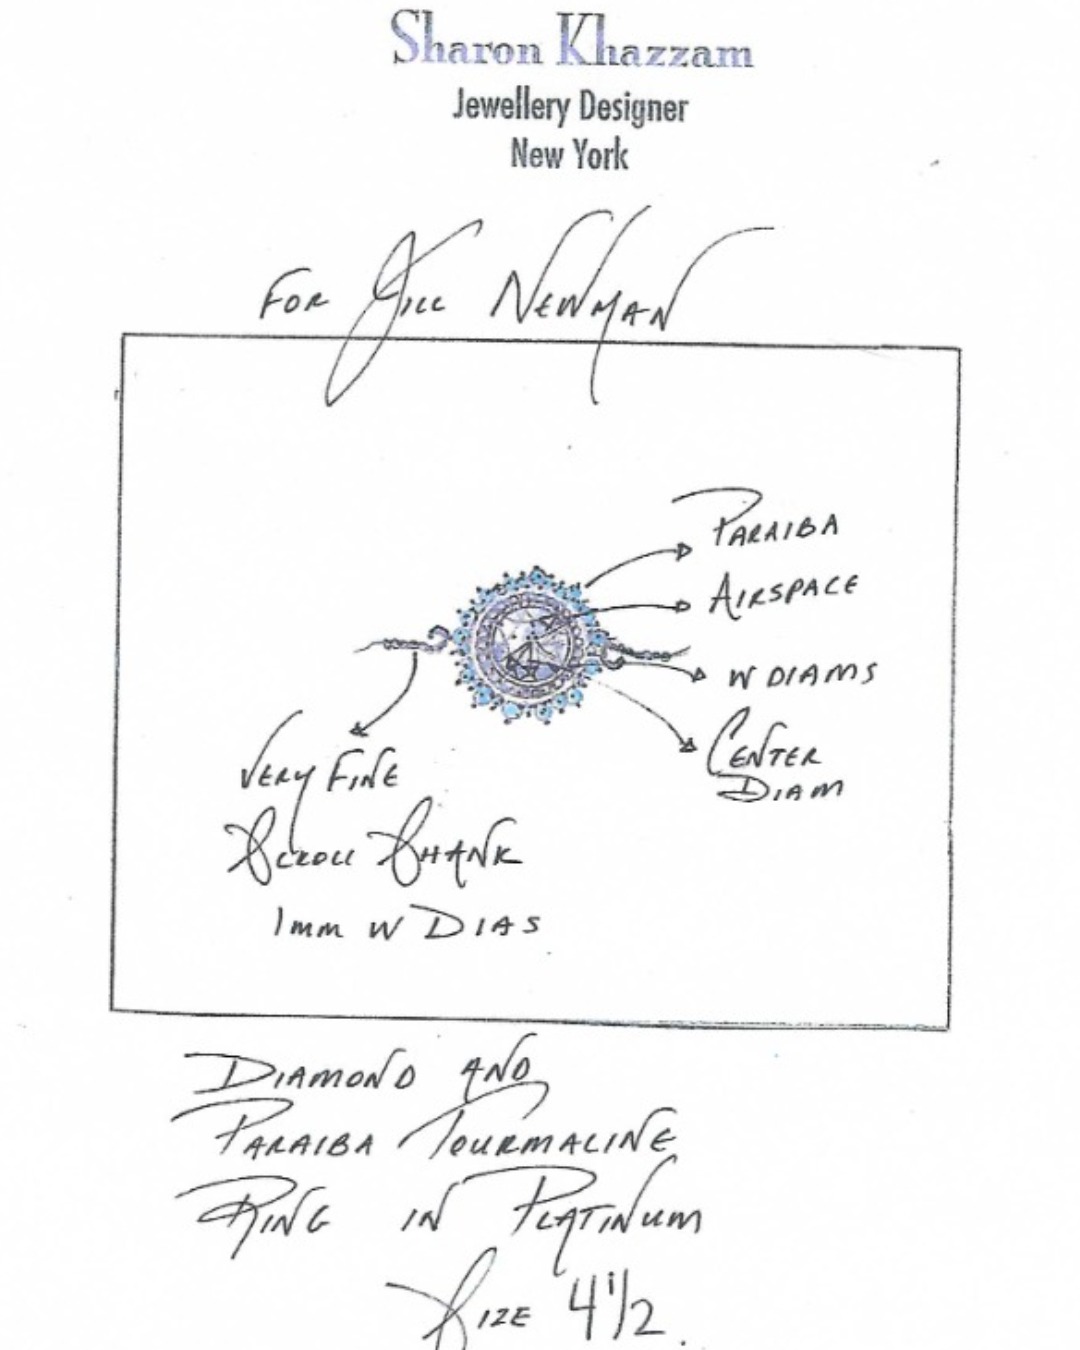 Sharon Khazzam
Jewellery Designer
New York
FOR JILL NEWMAN
PARAIBA
AIRSPACE
W DIAMS
CENTER
DIAM
VERY FINE
SCROLL SHANK
1mm W DIAS
DIAMOND AND
PARAIBA TOURMALINE
RING IN PLATINUM
SIZE 4 1/2.